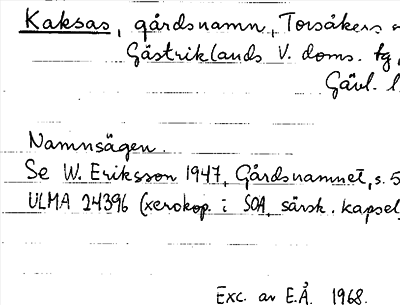 Kaksas, gårdsnamn, Torsåkers
Gästriklands V. doms. tg,
Gävl. l
Namnsägen.
Se W. Eriksson 1947, Gårdsnamnet, s. 5
ULMA 24396 (xerokop. i SOA, särsk. kapsel)
Exc. av E.Å. 1968.